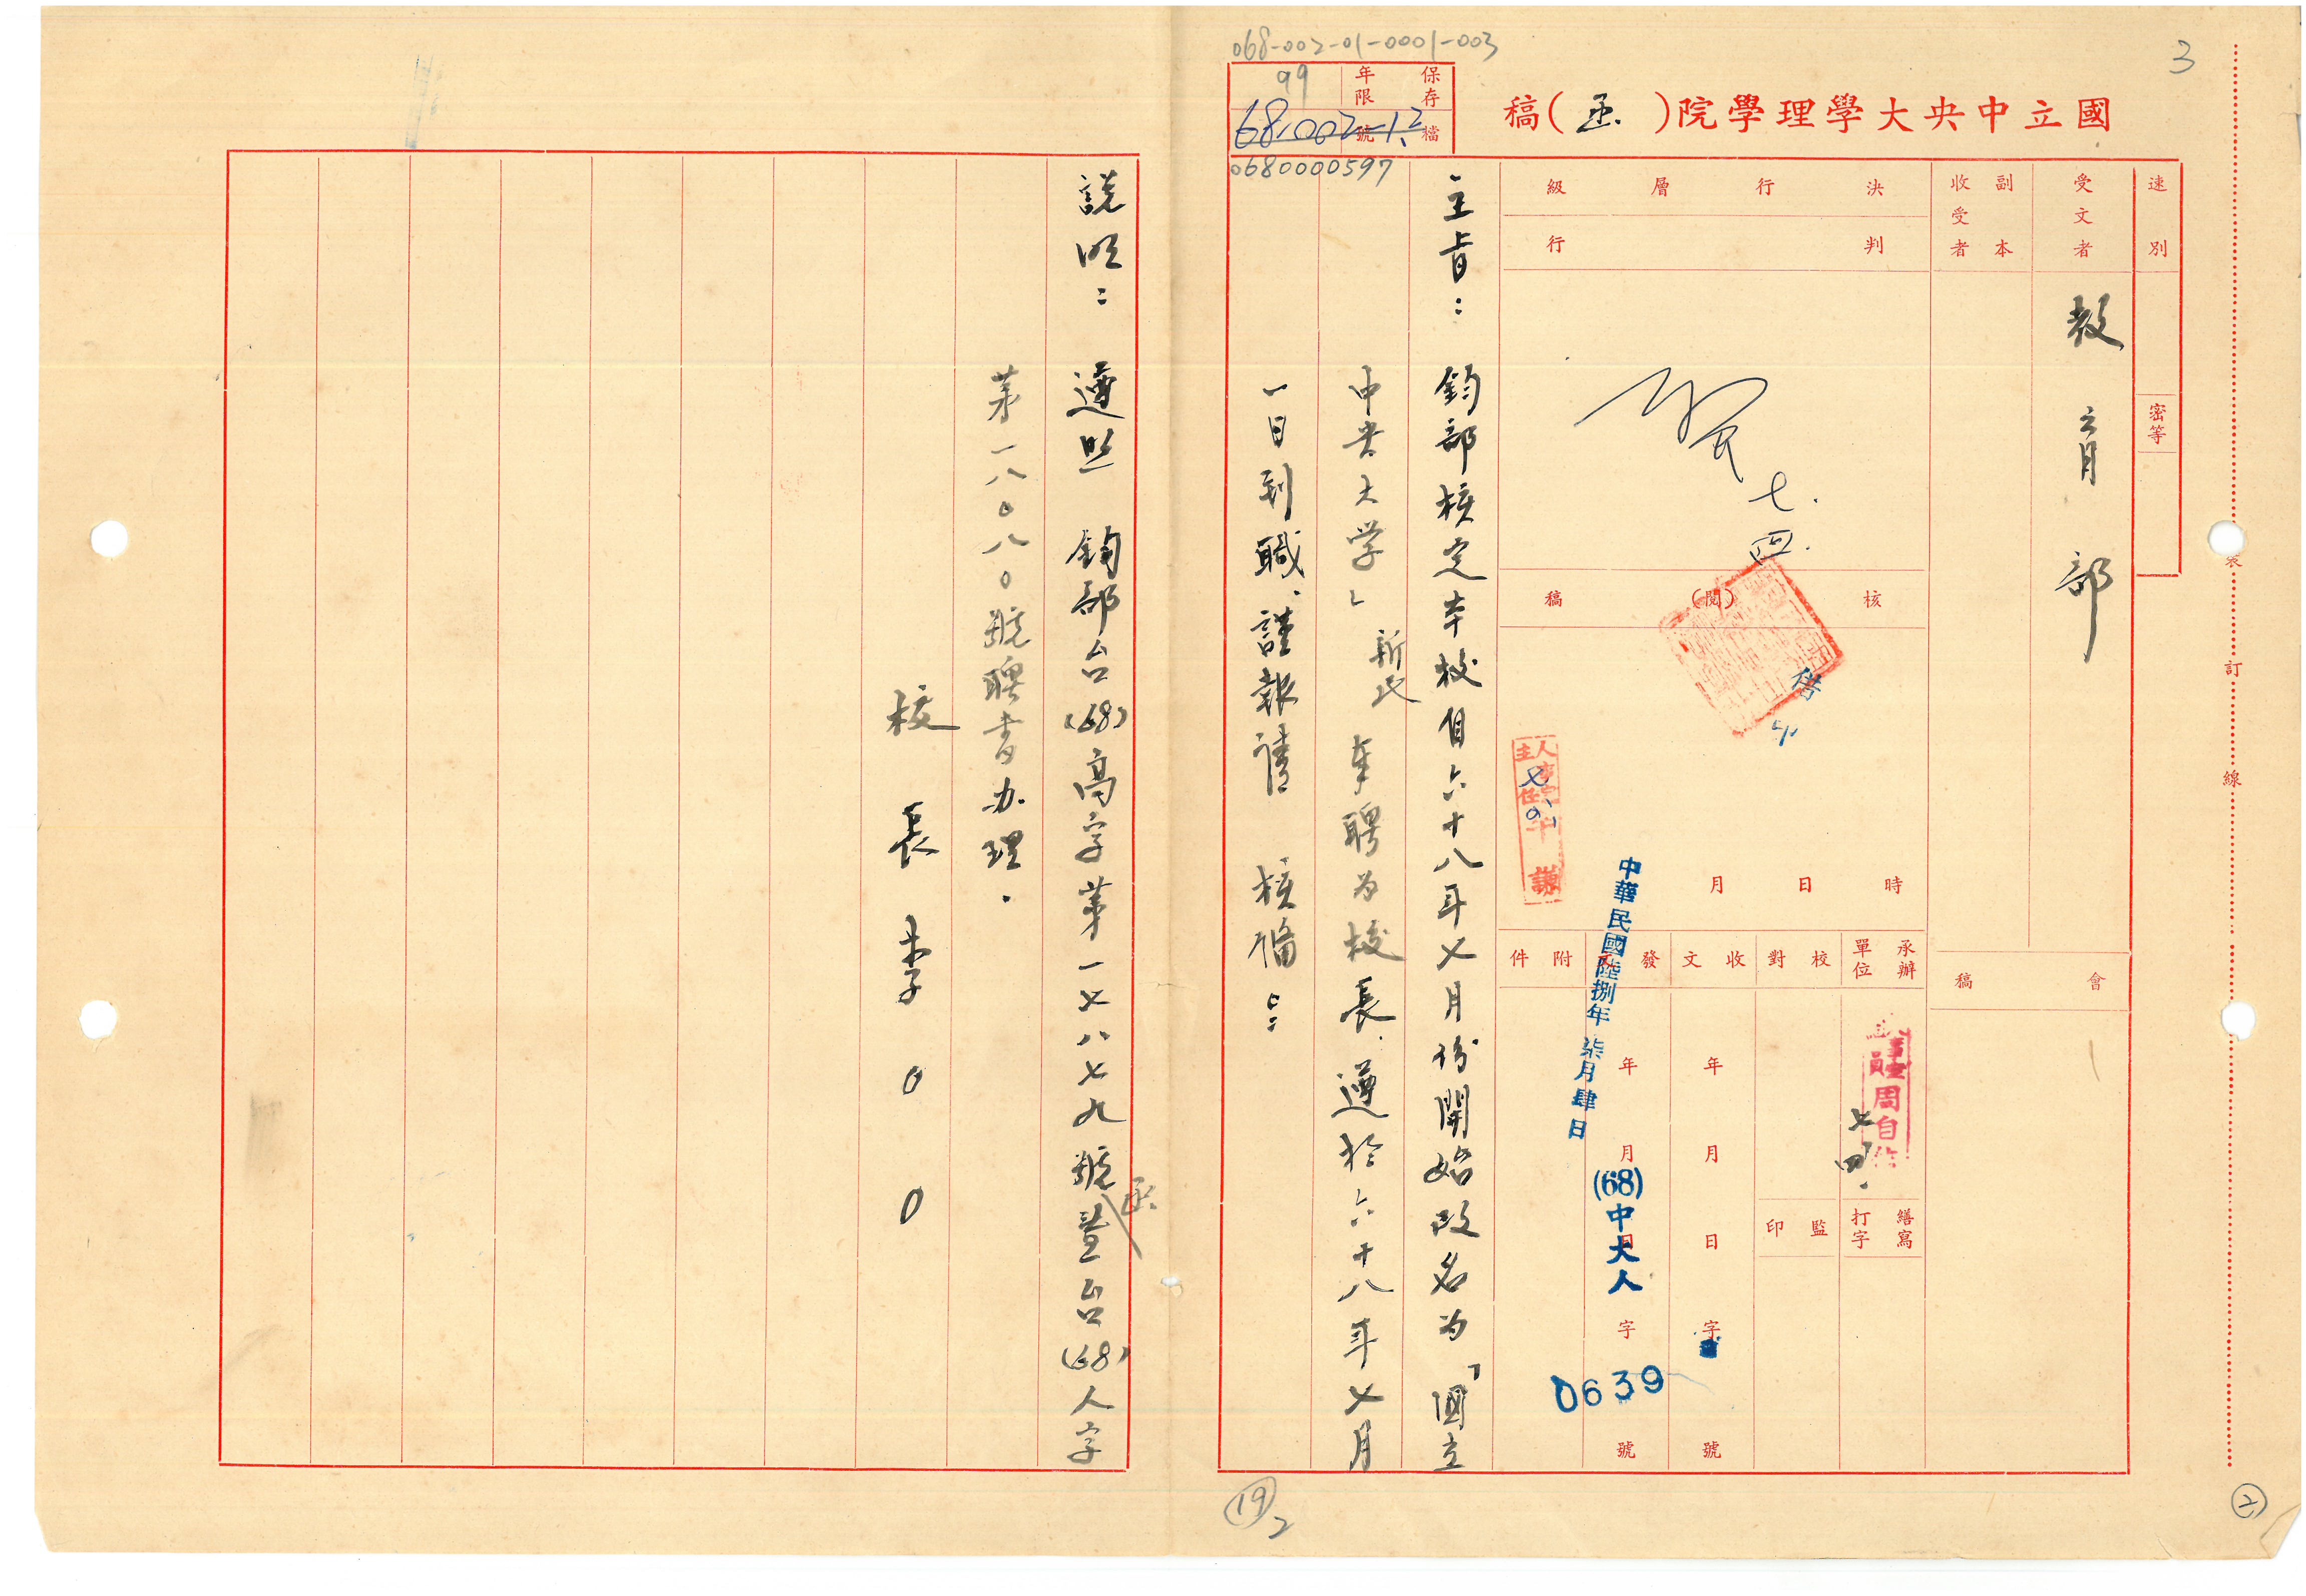 068-002-01-0001-003
3
國立中央大學理學院(函)稿
保存年限
99
檔號
68.002-1.2
0680000597
速別
密等
受文者
教育部
副本收受者
會稿
決行層級
判行
七.四.
核(閱)稿
借印
月日時
承辦單位
校對
收文
發文
附件
繕寫打字
監印
周自
七四.
年月日字號
年月日字號
中華民國陸捌年柒月肆日
(68)中大人
0639
主旨：鈞部核定本校自六十八年七月份開始改名為「國立
中央大学」新民奉聘为校長.遵於六十八年七月
一日到職、謹報請核備：
說明：遵照鈞部台(68)高字第一七八七九號函暨台(68)人字
第一八〇八〇號聘書办理.
校長李00
裝訂線
19
2
2